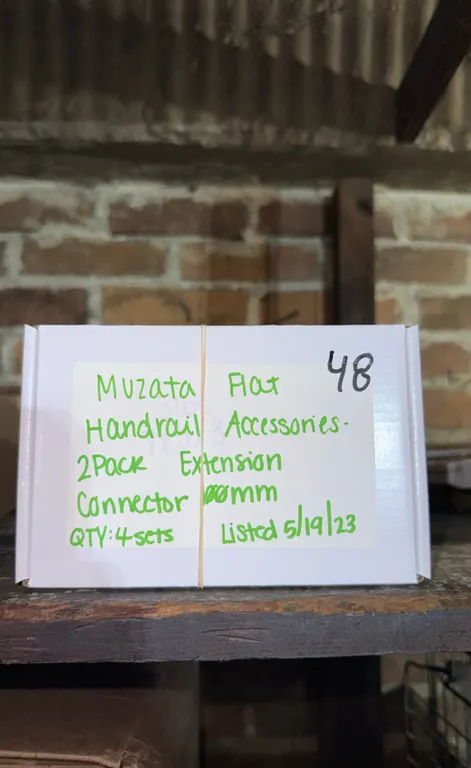 48
Muzata Flat
Handrail Accessories.
2Pack Extension
Connector mm
QTY: 4 sets Listed 5/19/23